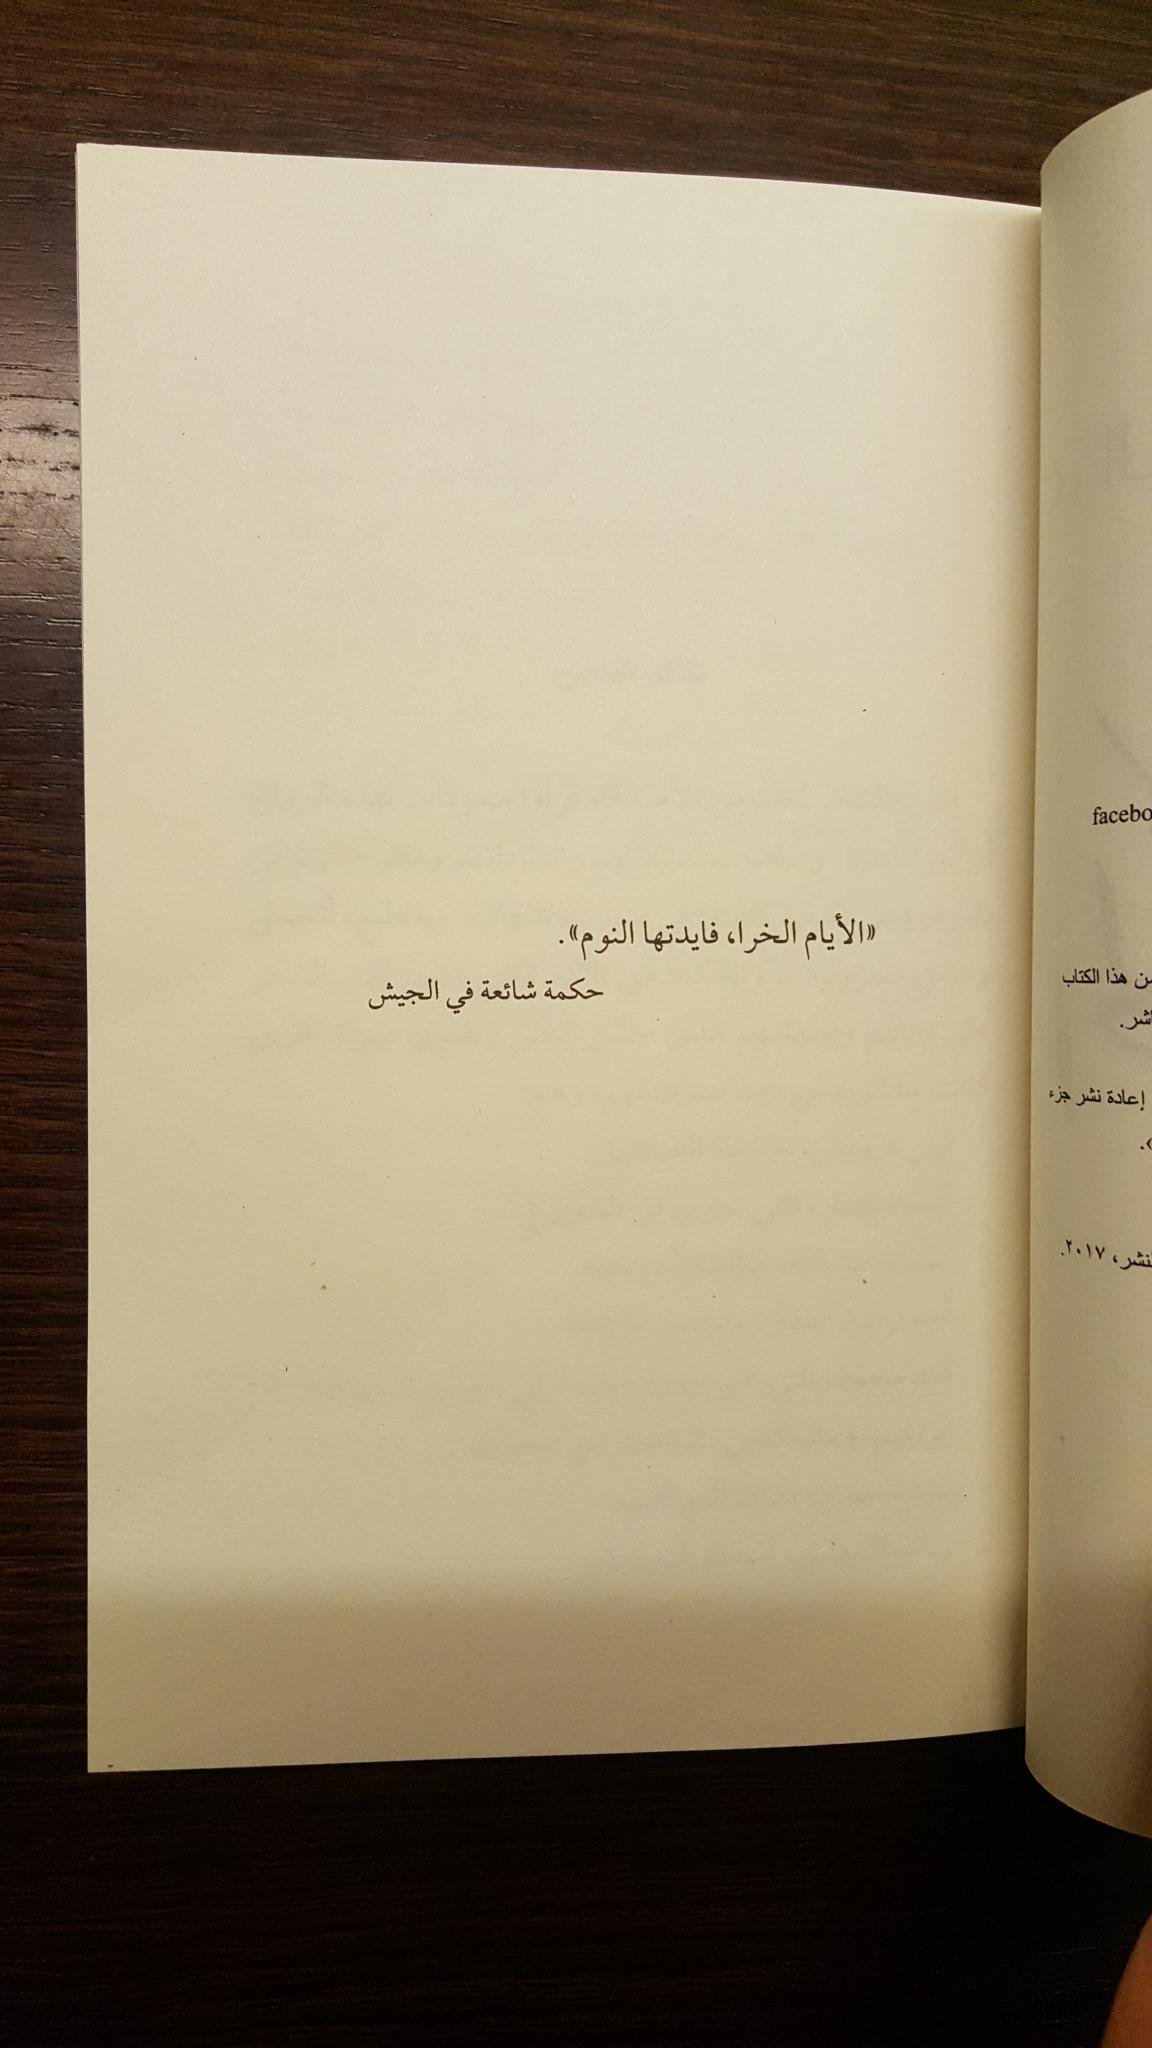 «الأيام الخرا، فايدتها النوم».
حكمة شائعة في الجيش
facebo
ن هذا الكتاب
اشر.
إعادة نشر جزء
».
لنشر، ٢٠١٧.